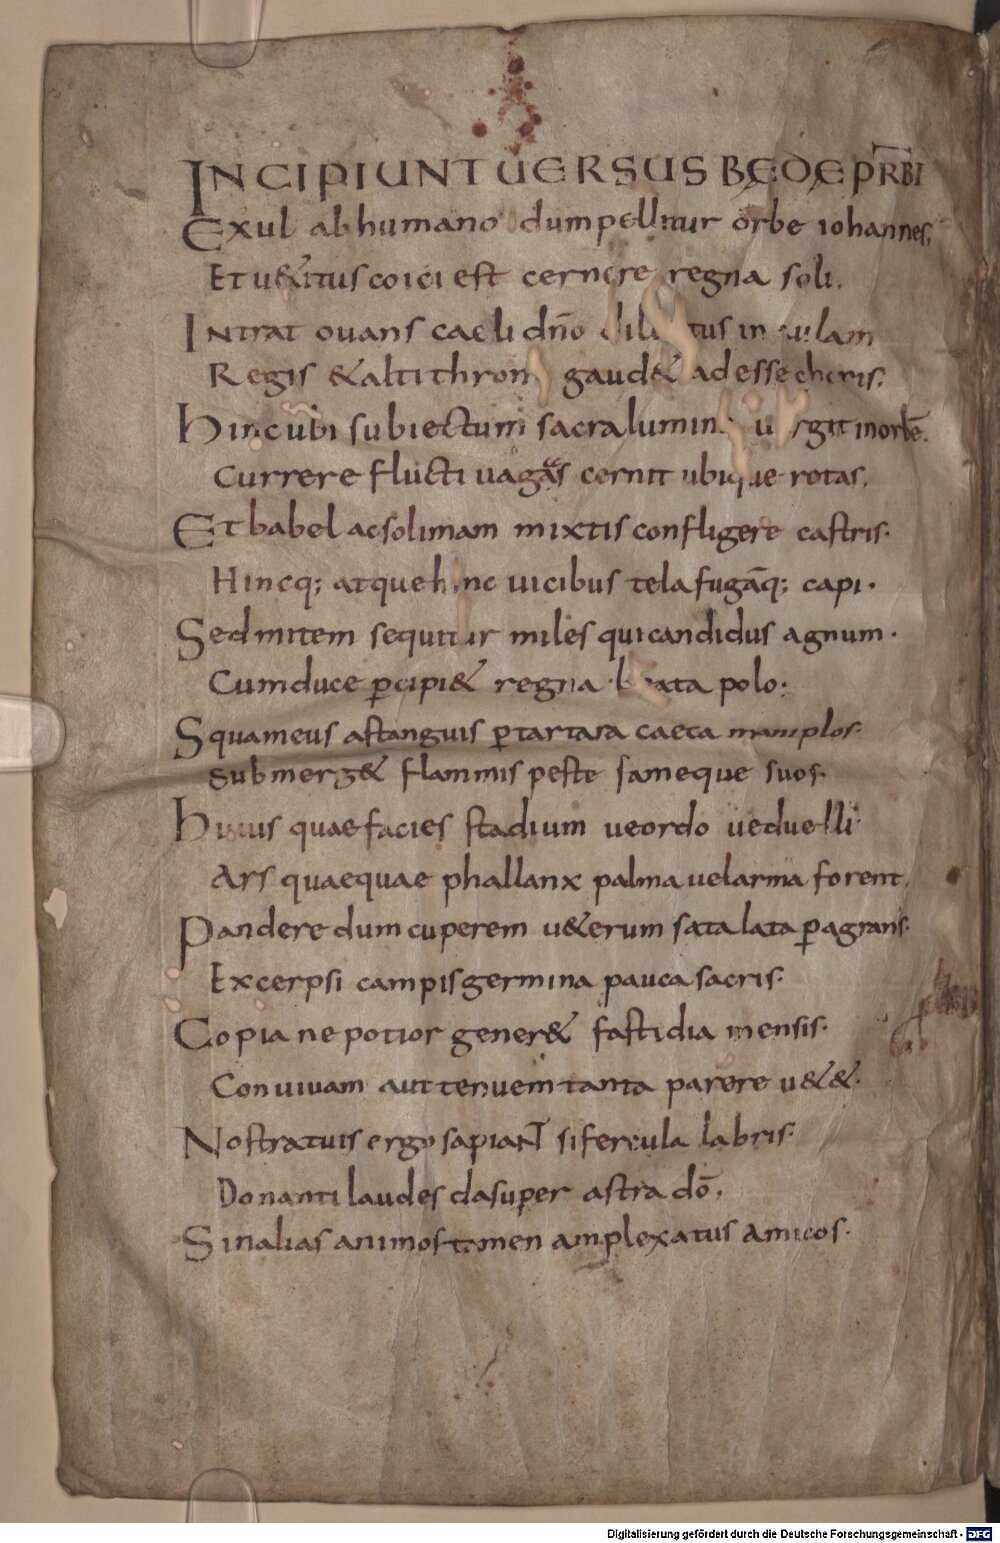 INCIPIUNT UERSUS BEDE PR̅BI
Exul ab humano dum pellitur orbe iohannes,
Et u&itus coici est cernere regna soli.
Intrat ouans caeli dn̄o in
Regis & alti throni gaud& adesse choris;
Hinc ubi subiectum sacra lumin in orbē.
Currere fluctiuagas cernit ubique rotas,
Et babel ac solimam mixtis confligere castris.
Hincq; atque hinc uicibus tela fugāq; capi.
Sed mitem sequitur miles qui candidus agnum.
Cum duce p̱cipi& regna beata polo;
Squameus ast anguis p̱ tartara caeca maniplos.
Submerg& flammis peste fameque suos.
Huius quae facies stadium ue ordo ue duelli
Ars quae quae phallanx palma uel arma forent,
Pandere dum cuperem u&erum sata lata p̱agrans.
Excerpsi campis germina pauca sacris.
Copia ne potior gener& fastidia mensis.
Conuiuam aut tenuem tanta parere u&&.
Nostra tuis ergo sapiant si fercula labris.
Donanti laudes da super astra dō,
Sin alias animos tamen amplexatus amicos.
Digitalisierung gefördert durch die Deutsche Forschungsgemeinschaft - DFG